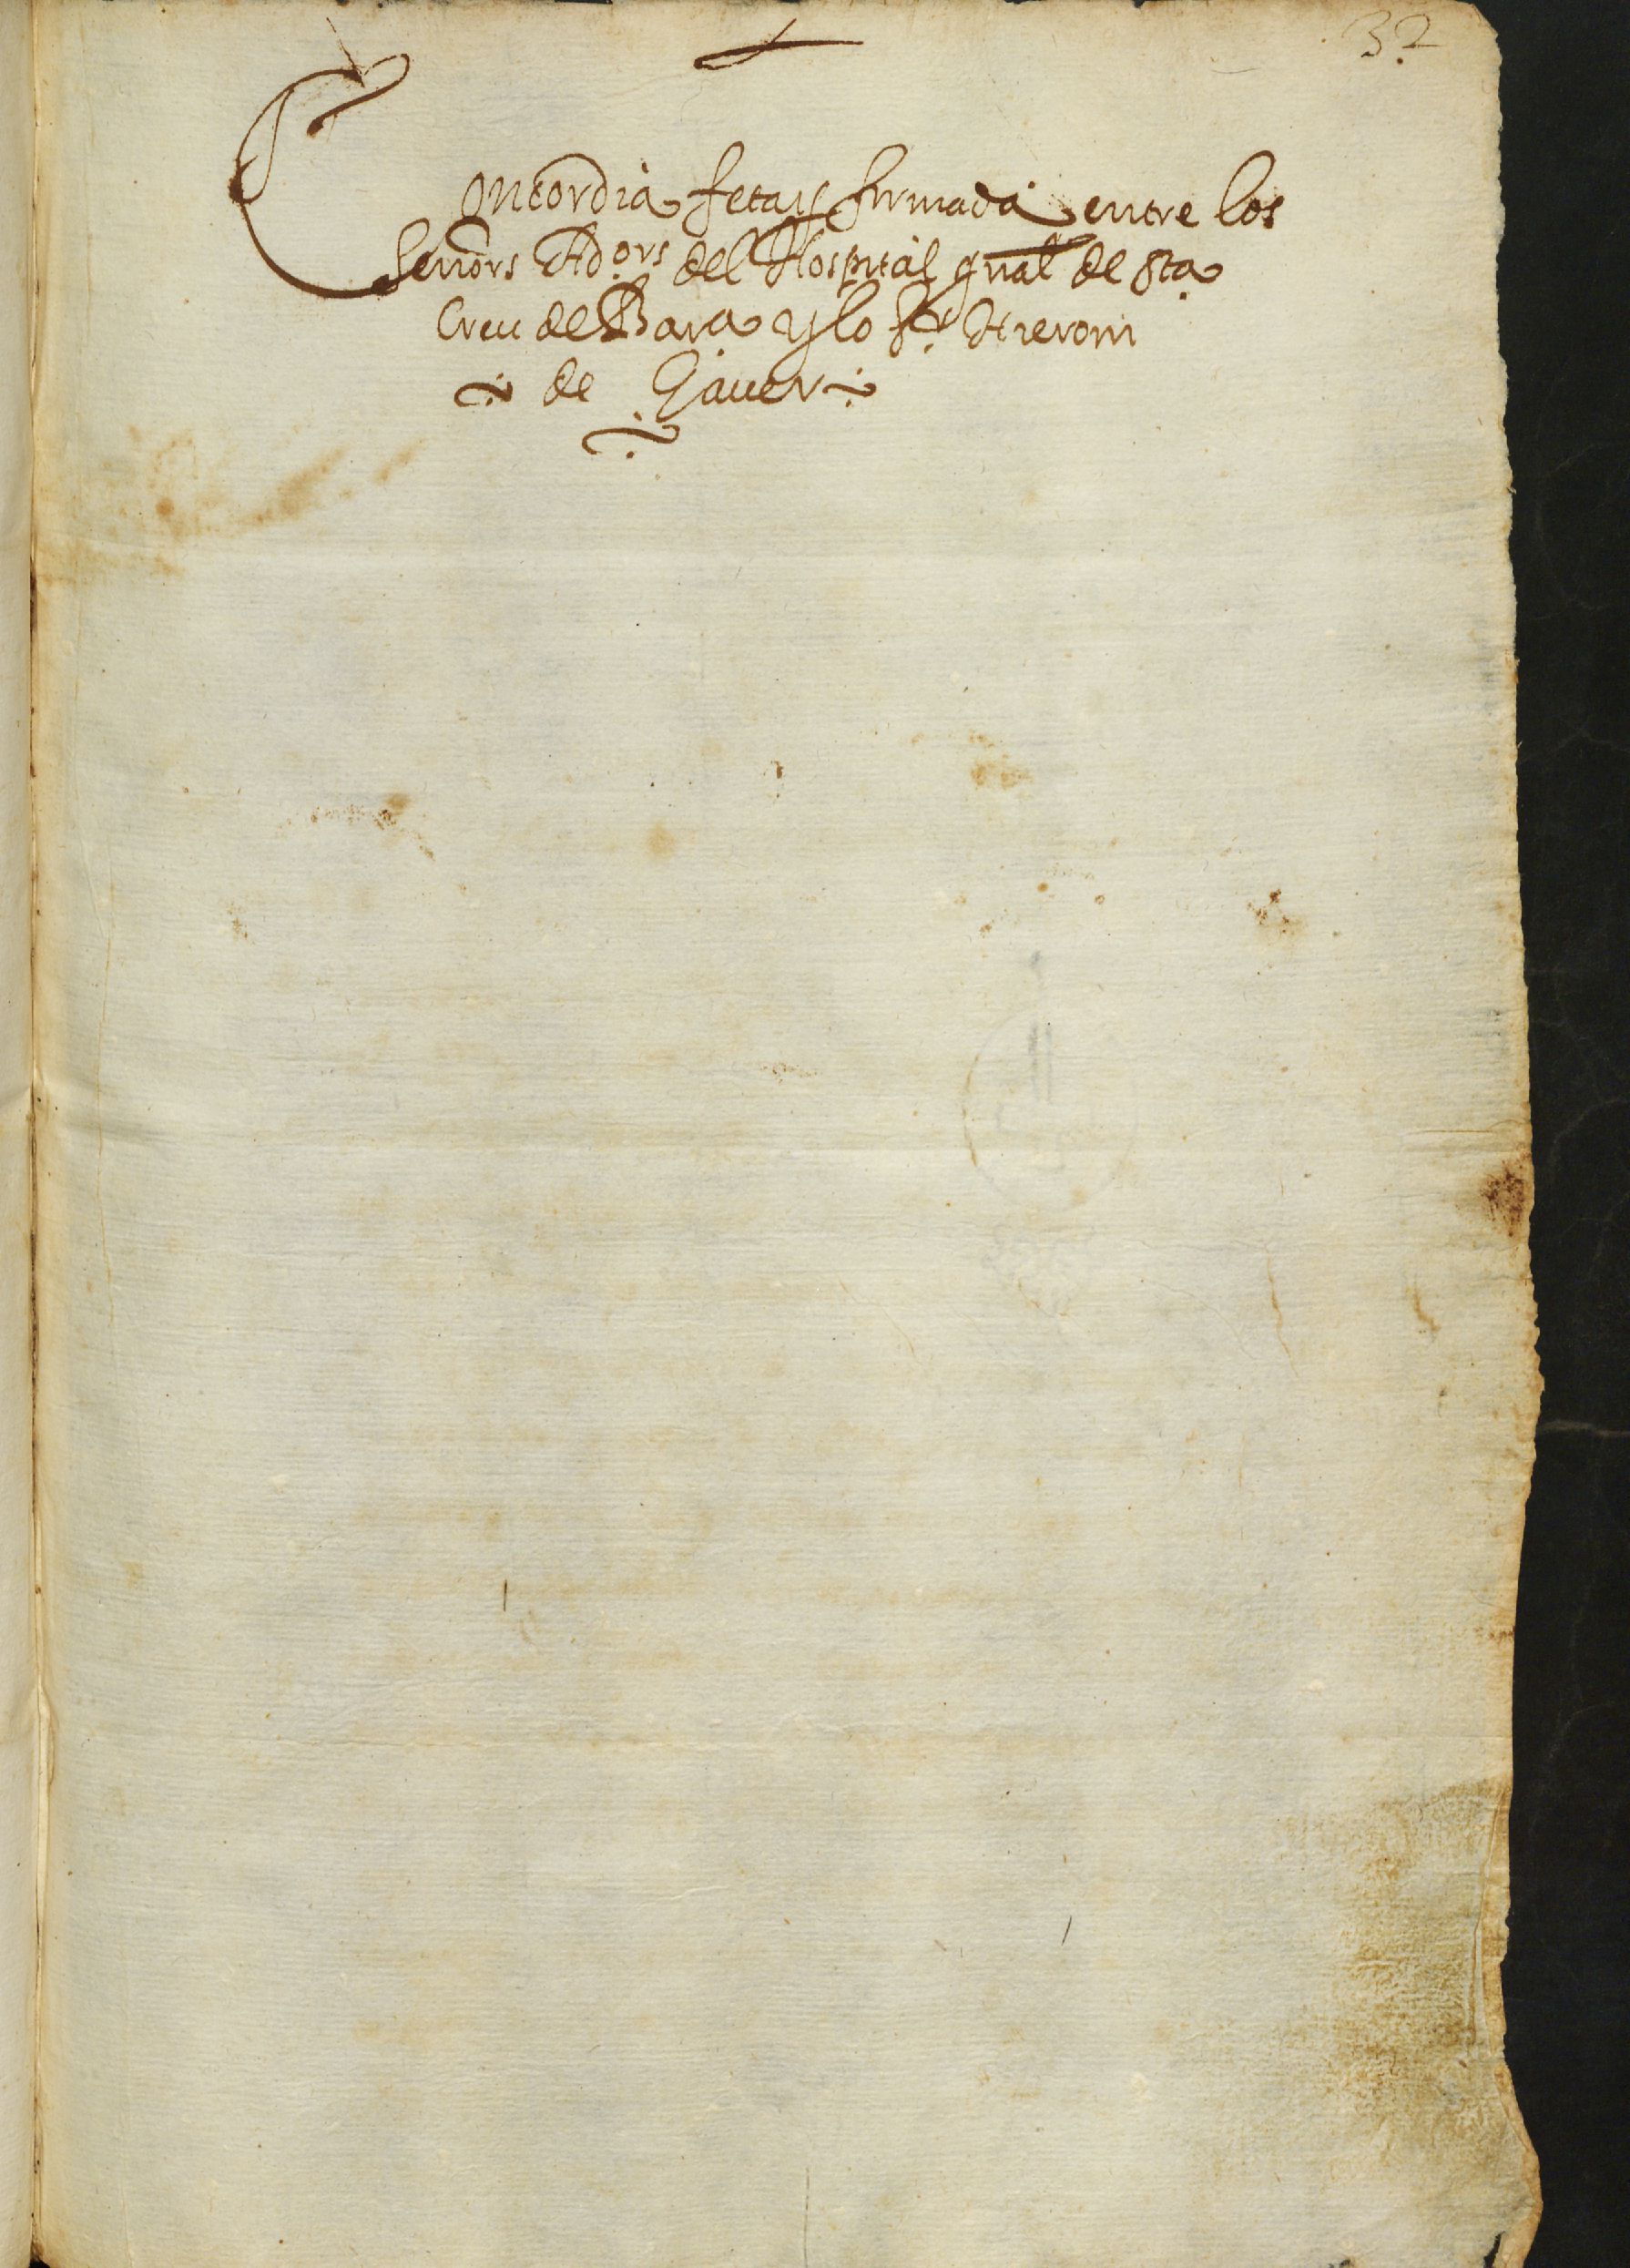 32
Concordia feta y firmada entre los
señors Adors del Hospital gnãl de Sta
Creu de Bara y lo Sr Hieroni
de Gaver